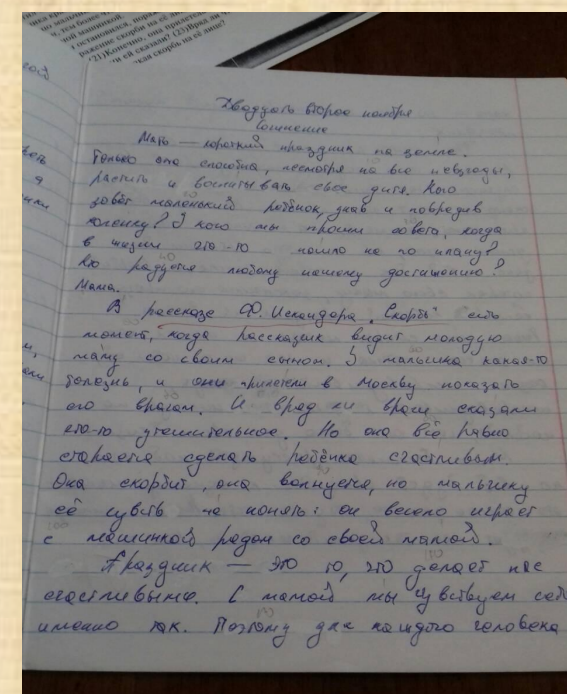 ика кр
но мальч
, тем более ч
ной машинкой.
остановился, пораж
ражение скорби на её ли
(21)Конечно, она прилетела
ей сказали? (23)Вряд ли ч
кая скорбь на её лице?
Двадцать второе ноября
Сочинение
Мать — короткий праздник на земле.
Только она способна, несмотря на все невзгоды,
растить и воспитывать своё дитя. Кого
зовёт маленький ребёнок, упав и повредив
коленку? У кого мы просим совета, когда
в жизни что-то пошло не по плану?
Кто радуется любому нашему достижению?
Мама.
В рассказе Ф. Искандера "Скорбь" есть
момент, когда рассказчик видит молодую
маму со своим сыном. У мальчика какая-то
болезнь, и они прилетели в Москву показать
его врачам. И вряд ли врачи сказали
что-то утешительное. Но она всё равно
старается сделать ребёнка счастливым.
Она скорбит, она волнуется, но мальчику
её чувств не понять: он весело играет
с машинкой рядом со своей мамой.
Праздник — это то, что делает нас
счастливыми. С мамой мы чувствуем себя
именно так. Поэтому для каждого человека